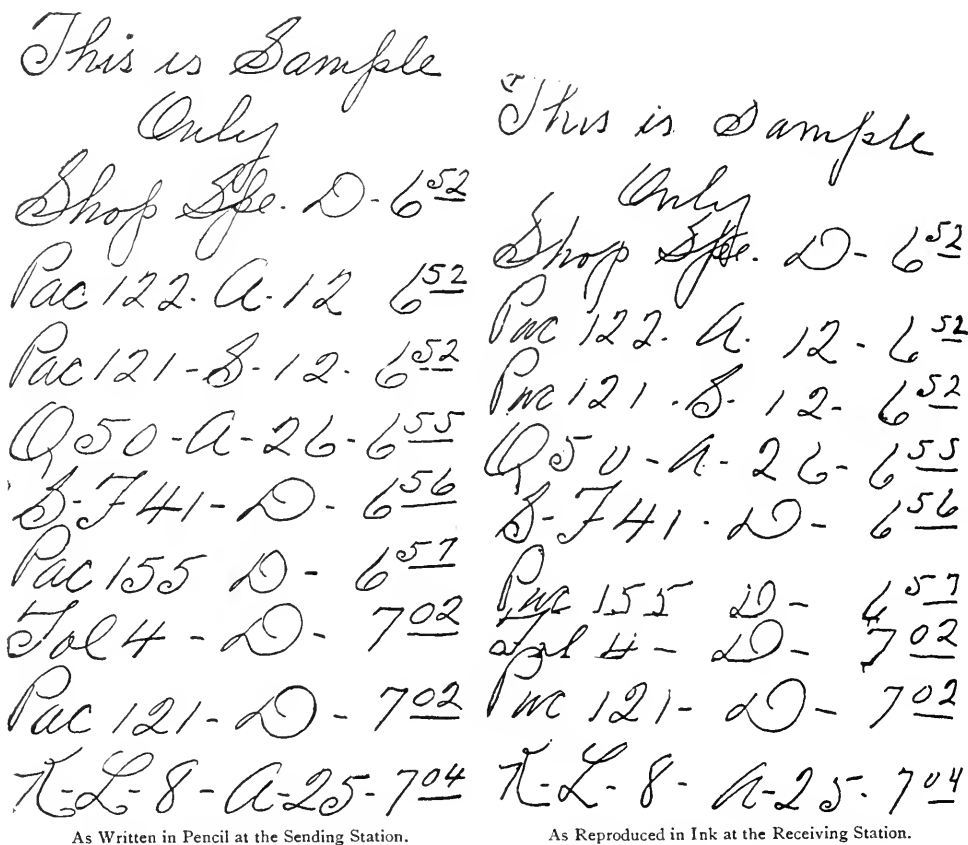 This is Sample
Only
Shop Spe. D - 6 52
Pac 122. A. 12 6 52
Pac 121 - S - 12. 6 52
Q 50 - A - 26 - 6 55
S - F 41 - D - 6 56
Pac 155 D - 6 57
Tol 4 - D - 7 02
Pac 121 - D - 7 02
K - L - 8 - A - 25 - 7 04
As Written in Pencil at the Sending Station.
This is Sample
Only
Shop Spe. D - 6 52
Pac 122. A. 12 - 6 52
Pac 121 - S - 12 - 6 52
Q 50 - A - 26 - 6 55
S - F 41 - D - 6 56
Pac 155 D - 6 57
Tol 4 - D - 7 02
Pac 121 - D - 7 02
K - L - 8 - A - 25 - 7 04
As Reproduced in Ink at the Receiving Station.